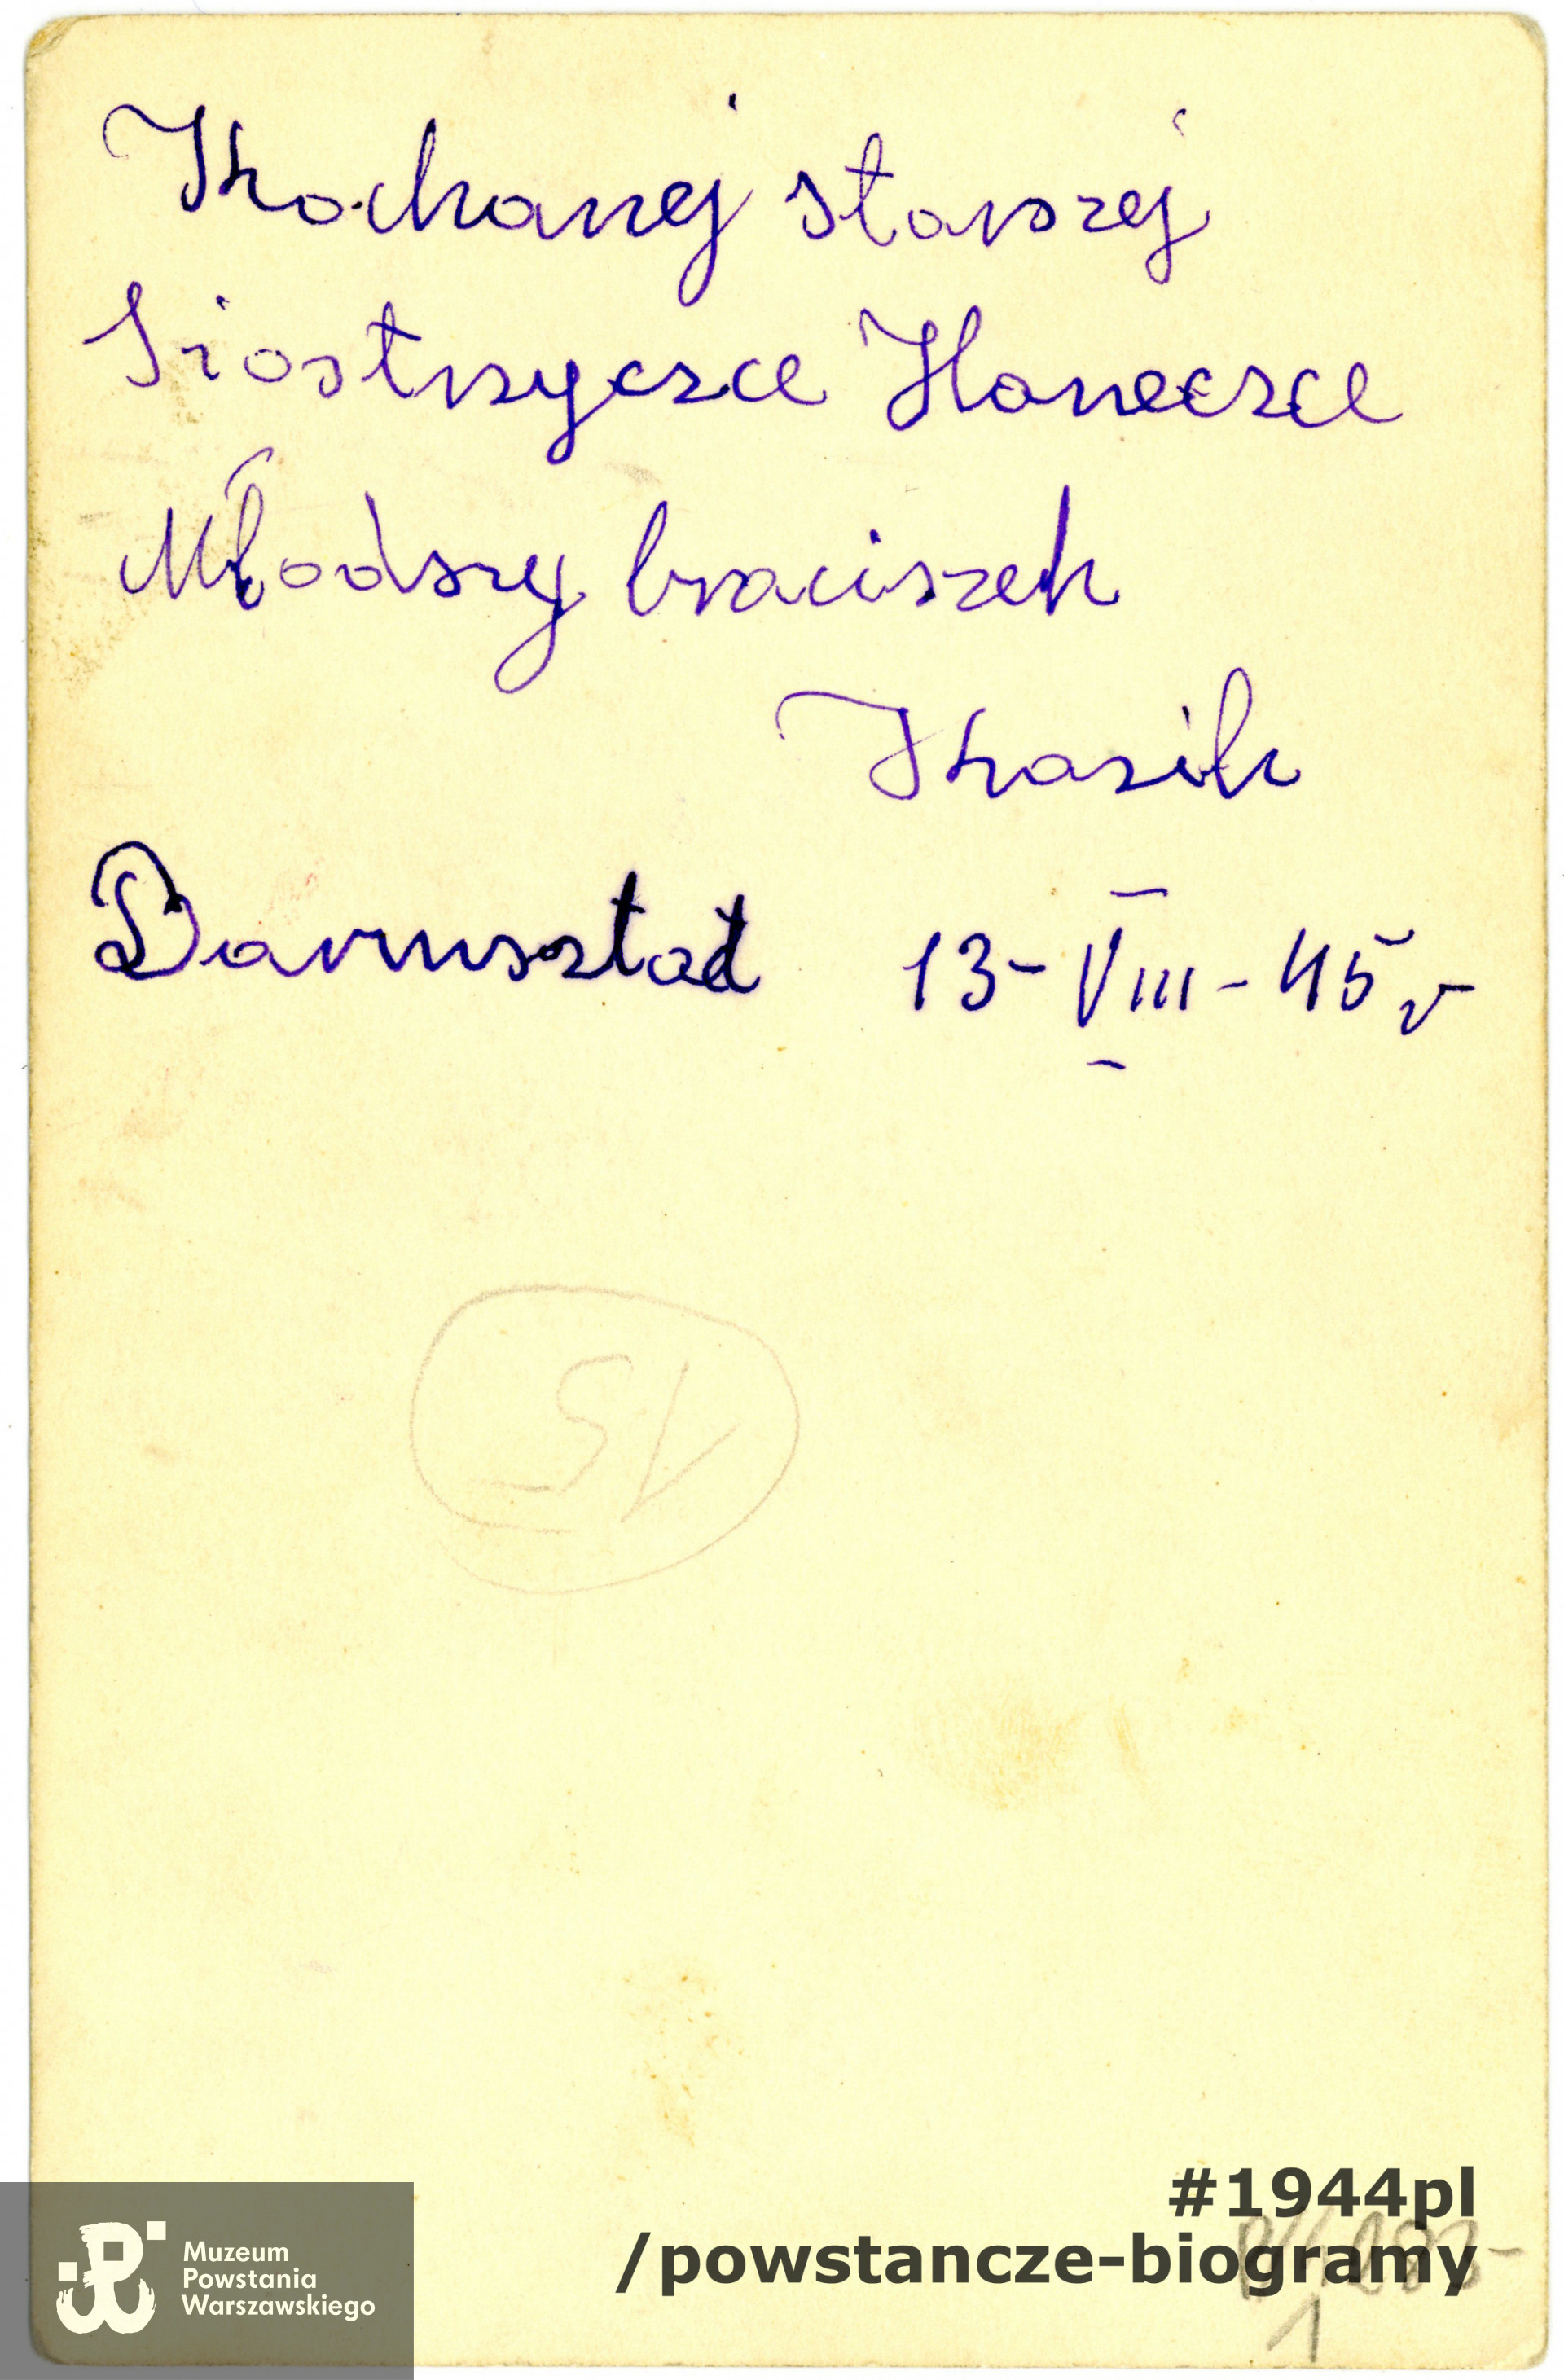 Kochanej starszej
Siostrzyczce Haneczce
Młodszy braciszek
Kazik
Darmsztat 13-VIII-45r
15
#1944pl
/powstancze-biogramy
1
Muzeum
Powstania
Warszawskiego